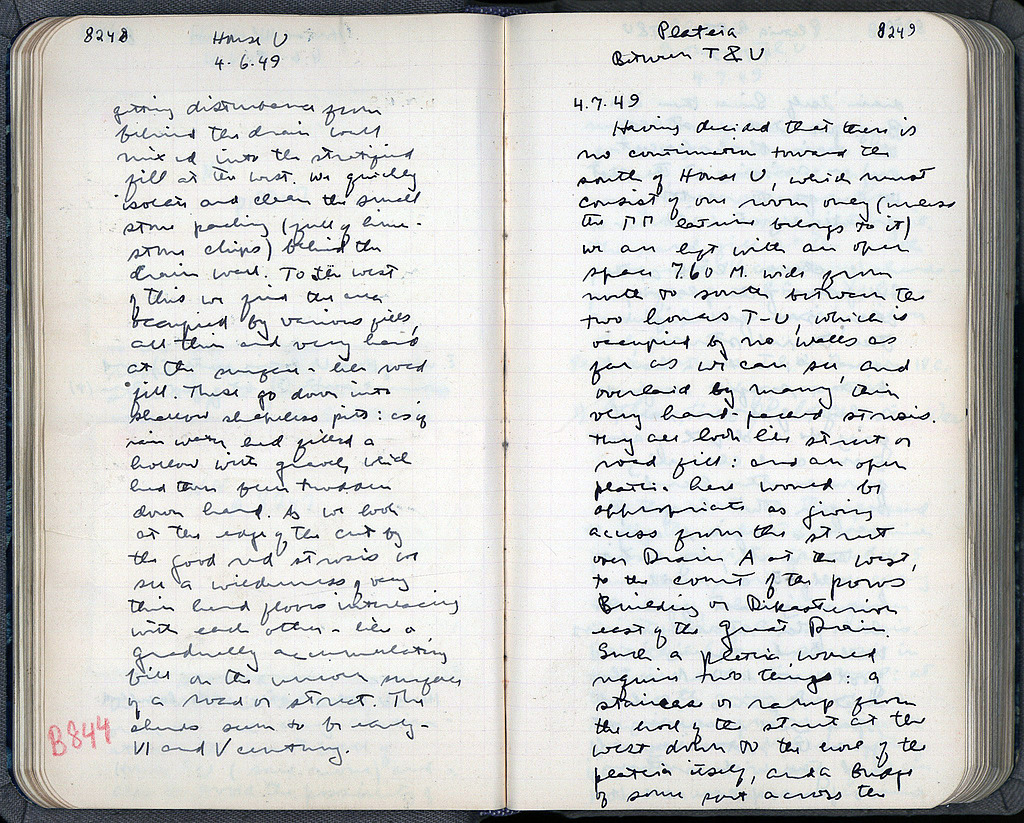 8248
House U
4.6.49
getting disturbance from
behind the drain wall
mixed into the stratified
fill at the west. We quickly
isolate and clean the small
stone packing (full of lime-
stone chips) behind the
drain wall. To the west
of this we find the area
occupied by various fills,
all thin and very hard
at the surface - like road
fill. These go down into
shallow shapeless pits: as if
rain water had filled a
hollow with gravel, which
had then been trodden
down hard. As we look
at the edge of the cut by
the good red strosis we
see a wilderness of very
thin hard floors interlacing
with each other - like a
gradually accumulating
fill on the uneven surface
of a road or street. The
sherds seem to be early -
VI and V century.
B844
Plateia
Between T & U
8249
4.7.49
Having decided that there is
no continuation toward the
south of House U, which must
consist of one room only (unless
the MM latrine belongs to it)
we are left with an open
space 7.60 M. wide from
north to south between the
two houses T-U, which is
occupied by no walls as
far as we can see, and
overlaid by many thin
very hard-packed strosis.
They all look like street or
road fill: and an open
plateia here would be
appropriate as giving
access from the street
over Drain A at the west,
to the court of the poros
Building or Dikasterion
east of the Great Drain.
Such a plateia would
require two things: a
staircase or ramp from
the level of the street at the
west down to the level of the
plateia itself, and a bridge
of some sort across the